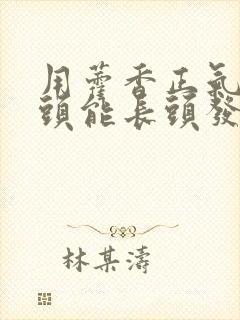 用藿香正氣
頭能長頭發
林某濤